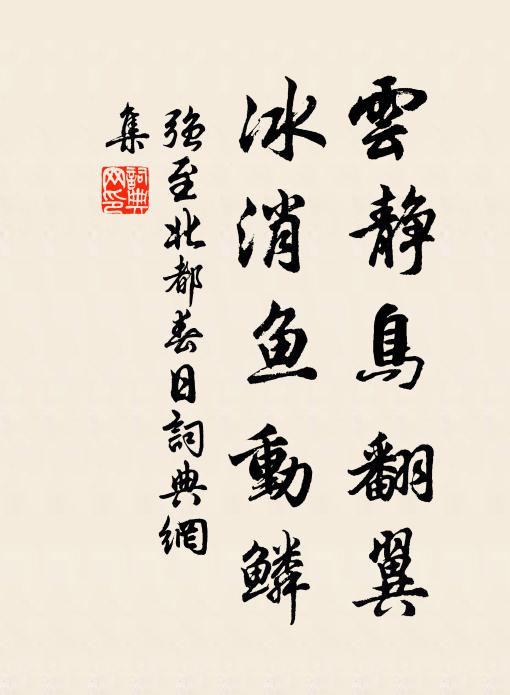 雲靜鳥翻翼
冰消魚動鱗
強至北都春日詞典網
集
詞典
網印